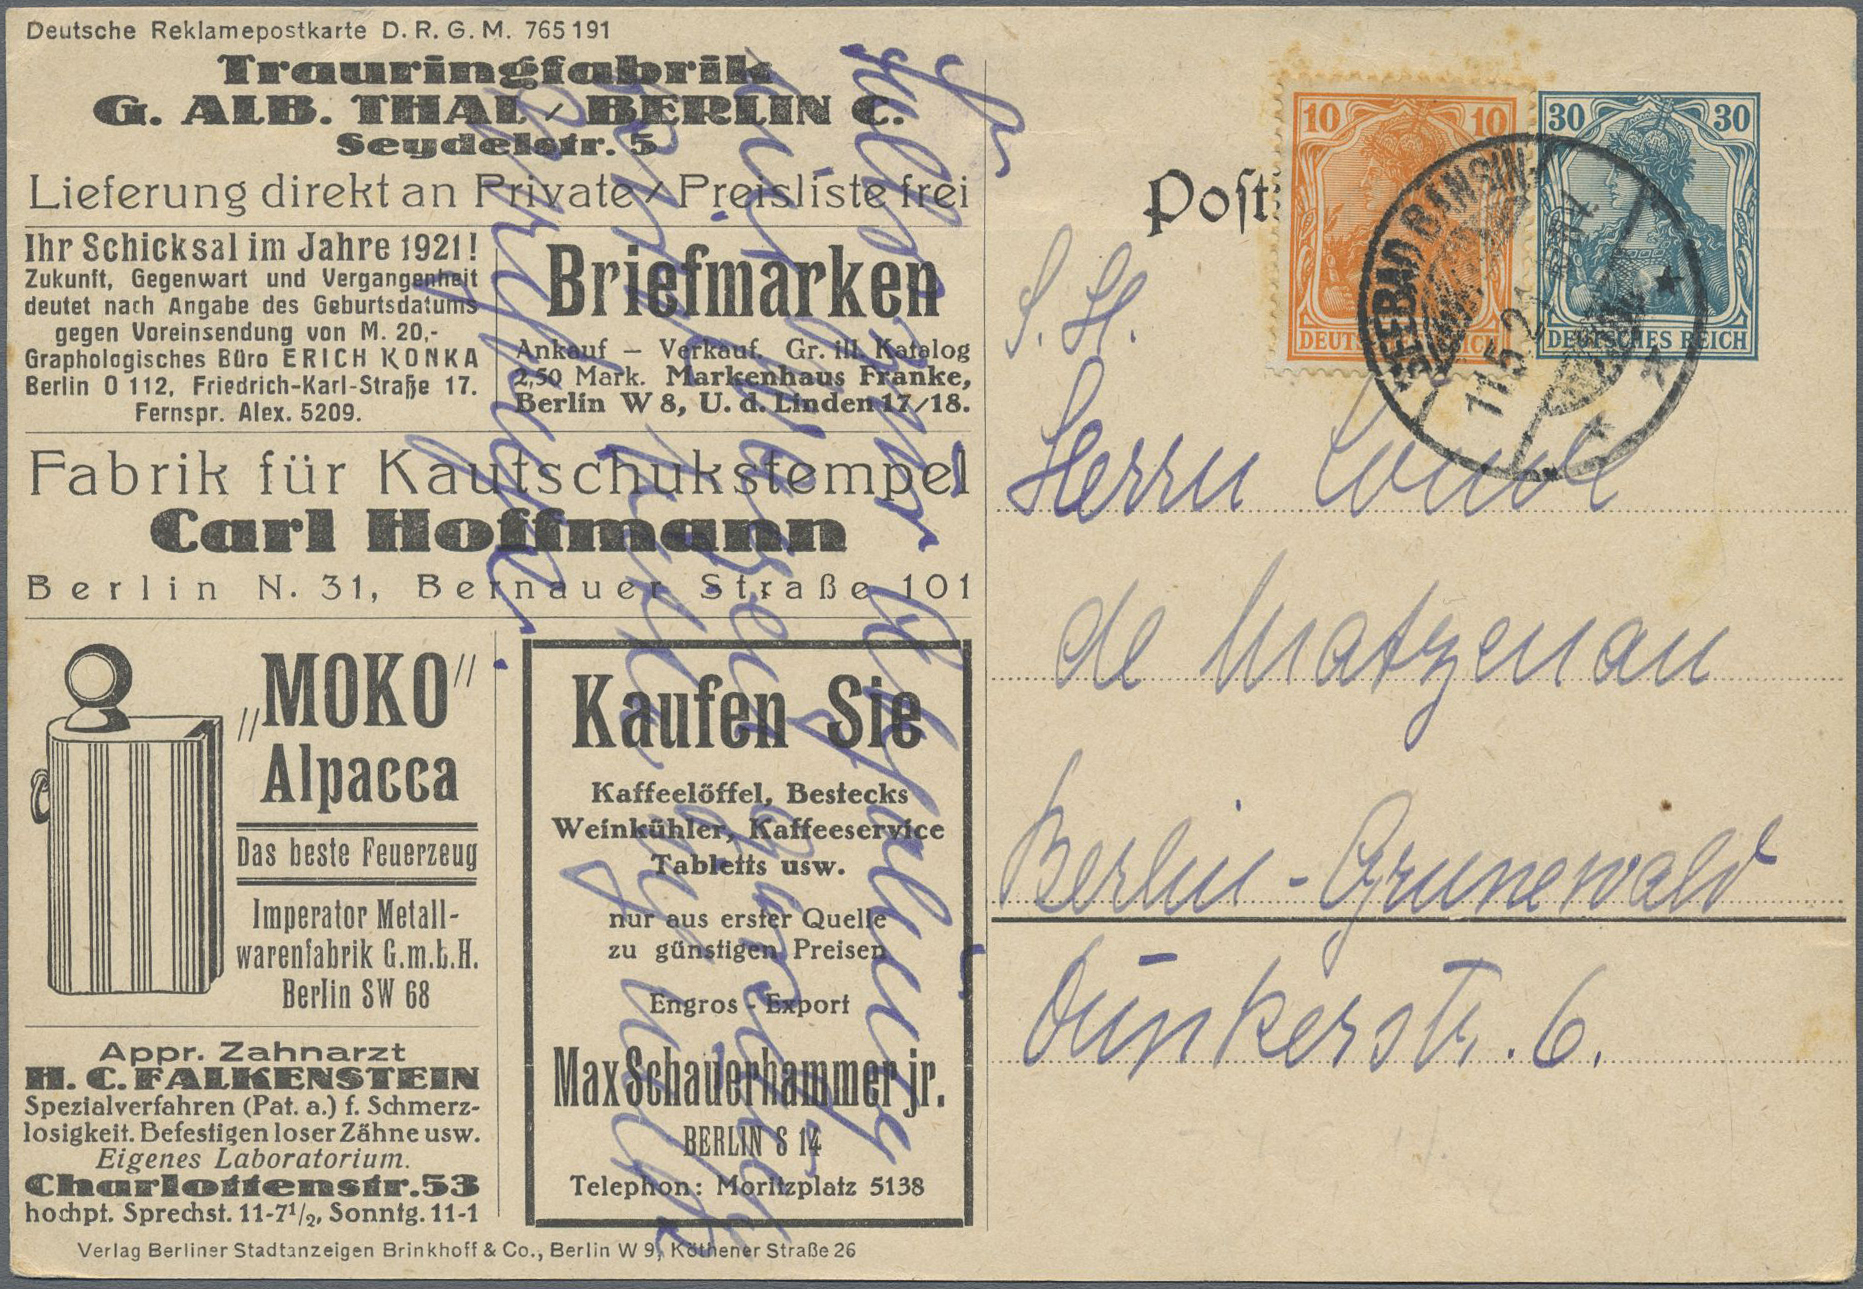 Deutsche Reklamepostkarte D. R. G. M. 765191
Trauringfabrik
G. ALB. THAL / BERLIN C.
Seydelstr. 5
Lieferung direkt an Private / Preisliste frei
Ihr Schicksal im Jahre 1921!
Zukunft, Gegenwart und Vergangenheit
deutet nach Angabe des Geburtsdatums
gegen Voreinsendung von M. 20,-
Graphologisches Büro ERICH KONKA
Berlin O 112, Friedrich-Karl-Straße 17.
Fernspr. Alex. 5209.
Briefmarken
Ankauf — Verkauf. Gr. ill. Katalog
2,50 Mark. Markenhaus Franke,
Berlin W 8, U. d. Linden 17/18.
Fabrik für Kautschukstempel
Carl Hoffmann
Berlin N. 31, Bernauer Straße 101
„MOKO"
Alpacca
Das beste Feuerzeug
Imperator Metall-
warenfabrik G.m.b.H.
Berlin SW 68
Appr. Zahnarzt
H. C. FALKENSTEIN
Spezialverfahren (Pat. a.) f. Schmerz-
losigkeit. Befestigen loser Zähne usw.
Eigenes Laboratorium.
Charlottenstr. 53
hochpt. Sprechst. 11-7½, Sonntg. 11-1
Kaufen Sie
Kaffeelöffel, Bestecks
Weinkühler, Kaffeeservice
Tabletts usw.
nur aus erster Quelle
zu günstigen Preisen
Engros - Export
Max Schauerhammer jr.
BERLIN S 14
Telephon: Moritzplatz 5138
Verlag Berliner Stadtanzeigen Brinkhoff & Co., Berlin W 9, Köthener Straße 26
Post
10 10
DEUTSCHES REICH
30 30
DEUTSCHES REICH
SEEBAD BANSIN
11.5.21
S. H.
Herrn Comte
de Matzenau
Berlin-Grunewald
Dünkerstr. 6.